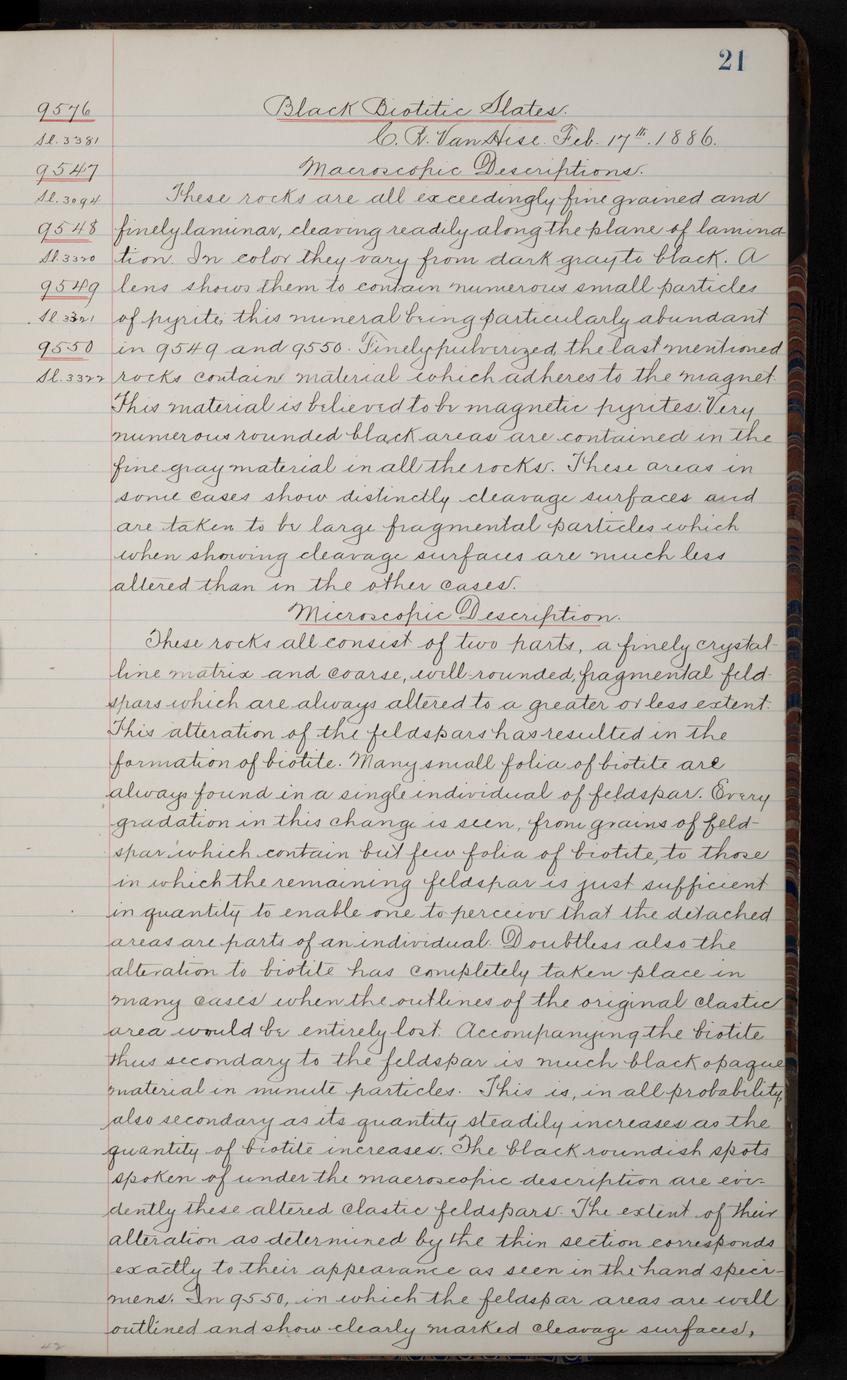 21
9576
Black Biotitic Slates.
Sl. 3381
C. R. Van Hise. Feb. 17th. 1886.
9547
Macroscopic Descriptions.
Sl. 3094
These rocks are all exceedingly fine grained and
9548
finely laminar, cleaving readily along the plane of lamina-
Sl. 3320
tion. In color they vary from dark gray to black. A
9549
lens shows them to contain numerous small particles
Sl. 3321
of pyrite, this mineral being particularly abundant
9550
in 9549 and 9550. Finely pulverized, the last mentioned
Sl. 3322
rocks contain material which adheres to the magnet.
This material is believed to be magnetic pyrites. Very
numerous rounded black areas are contained in the
fine gray material in all the rocks. These areas in
some cases show distinctly cleavage surfaces and
are taken to be large fragmental particles which
when showing cleavage surfaces are much less
altered than in the other cases.
Microscopic Description.
These rocks all consist of two parts, a finely crystal-
line matrix and coarse, well-rounded, fragmental feld-
spars which are always altered to a greater or less extent.
This alteration of the feldspars has resulted in the
formation of biotite. Many small folia of biotite are
always found in a single individual of feldspar. Every
gradation in this change is seen, from grains of feld-
spar which contain but few folia of biotite, to those
in which the remaining feldspar is just sufficient
in quantity to enable one to perceive that the detached
areas are parts of an individual. Doubtless also the
alteration to biotite has completely taken place in
many cases when the outlines of the original clastic
area would be entirely lost. Accompanying the biotite
thus secondary to the feldspar is much black opaque
material in minute particles. This is, in all probability,
also secondary as its quantity steadily increases as the
quantity of biotite increases. The black roundish spots
spoken of under the macroscopic description are evi-
dently these altered clastic feldspars. The extent of their
alteration as determined by the thin section corresponds
exactly to their appearance as seen in the hand speci-
mens. In 9550, in which the feldspar areas are well
outlined and show clearly marked cleavage surfaces,